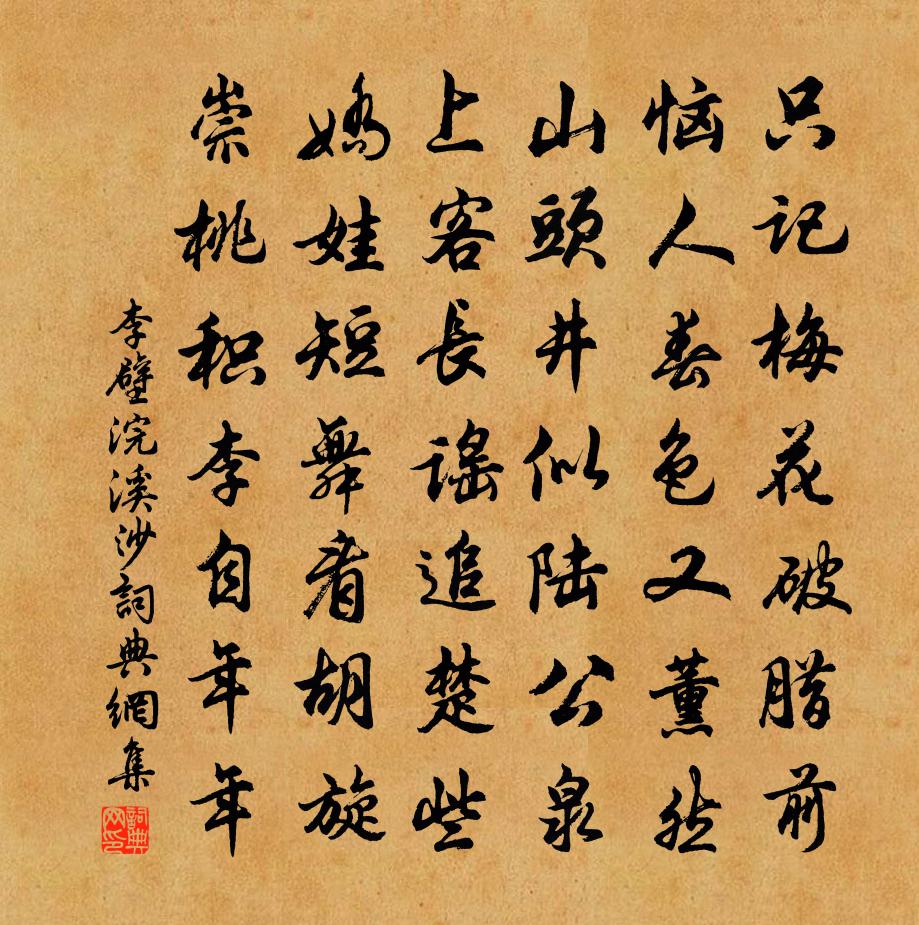 只记梅花破腊前
恼人春色又薰然
山頭井似陆公泉
上客長謡追楚些
嬌娃短舞看胡旋
崇桃积李自年年
李壁浣溪沙詞典網集
詞典网印